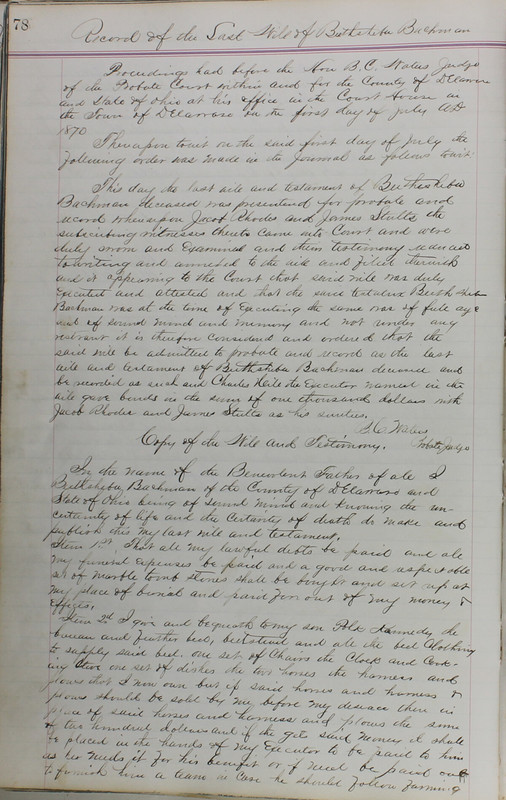 78
Record of the Last Will of Bethsheba Bachman
Proceedings had before the Hon B.C. Waters Judge
of the Probate Court within and for the County of Delaware
and State of Ohio at his office in the Court House in
the Town of Delaware on the first day of July AD
1870
Thereupon towit on the said first day of July the
following order was made in the Journal as follows towit
This day the last will and testament of Bethsheba
Bachman deceased was presented for probate and
record whereupon Jacob Rhodes and James Stults the
subscribing witnesses thereto came into Court and were
duly sworn and Examined and their testimony reduced
to writing and annexed to the will and filed therewith
and it appearing to the Court that said will was duly
Executed and attested and that the said testatrix Bethsheba
Bachman was at the time of Executing the same was of full age
and of sound mind and memory and not under any
restraint it is therefore Considered and ordered that the
said will be admitted to probate and record as the last
will and testament of Bethsheba Bachman deceased and
be recorded as such and Charles the Executor named in the
will gave bonds in the sum of one thousands dollars with
Jacob Rhodes and James Stults as his sureties.
B.C. Waters
Probate Judge
Copy of the Will and Testimony.
In the name of the Benevolent Father of all I
Bethsheba Bachman of the County of Delaware and
State of Ohio being of sound mind and knowing the un-
certainty of life and the certainty of death do make and
publish this my last will and testament.
Item 1st. That all my lawful debts be paid and all
my funeral expenses be paid and a good and aspectable
set of marble tomb stones shall be bought and set up at
my place of burial and paid for out of my money &
Effects.
Item 2d I give and bequeath to my son Polk Kennedy the
bureau and feather bed, bedstead and all the bed Clothing
to supply said bed. one set of Chairs the Clock and Cook-
ing stove one set of dishes the two horses the harness and
plows that I now own but if said horses and harness &
plows should be sold by me before my decease then in
place of said horses and harness and plows the some
of two hundred dollars and if he get said money it shall
be placed in the hands of my Executor to be paid to him
as he needs it for his benefit or if need be paid out
to furnish him a team in Case he should follow farming